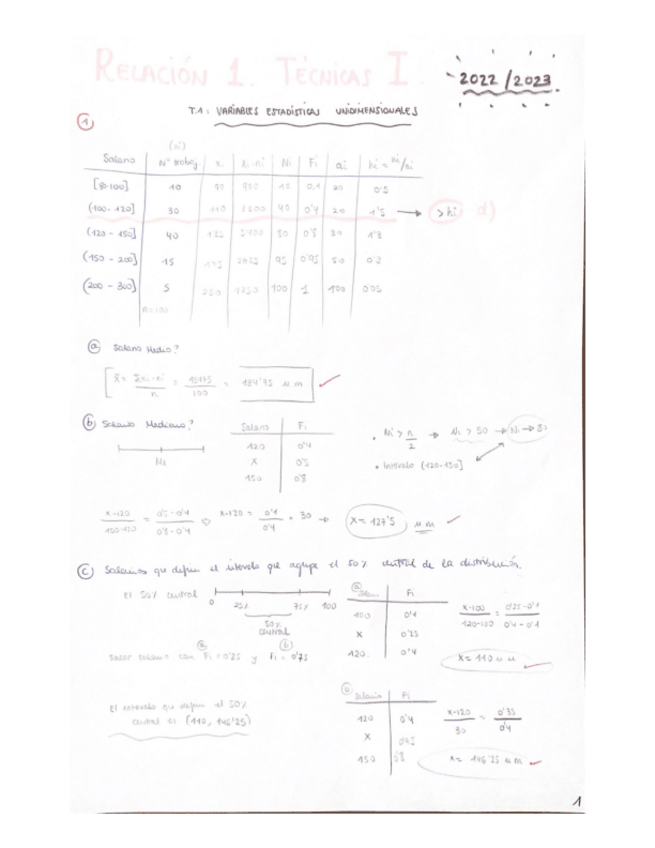 RELACIÓN 1. TÉCNICAS I.
2022/2023
T.1: VARIABLES ESTADÍSTICAS UNIDIMENSIONALES
1
(ni)
Salario Nº trabaj. xi xi·ni Ni Fi ai hi = ni/ai
[80-100] 10 90 900 10 0,1 20 0'5
(100-120] 30 110 3300 40 0'4 20 1'5 → >hi d)
(120-150] 40 135 5400 80 0'8 30 1'3
(150-200] 15 175 2625 95 0'95 50 0'3
(200-300] 5 250 1250 100 1 100 0'05
n=100
a Salario Medio?
x̄ = Σxi·ni / n = / 100 = u m
b Salario Mediano?
Salario Fi
120 0'4
x 0'5
150 0'8
• Ni > n/2 → Ni > 50 → Ni → 80
• Intervalo (120-150]
x-120 / 150-120 = 0'5-0'4 / 0'8-0'4 x-120 = 0'1 / 0'4 · 30 → x = 127'5 u m
c Salarios que definen el intervalo que agrupe el 50% central de la distribución.
El 50% central 0 25% 75% 100
50% central
a Salario Fi
100 0'1
x 0'25
120 0'4
x-100 / 120-100 = 0'25-0'1 / 0'4-0'1
x = 110 u m
Sacar salario con Fi = 0'25 y Fi = 0'75
a b
El intervalo que define el 50%
central es (110, 146'25)
b Salario Fi
120 0'4
x 0'75
150 0'8
x-120 / 30 = 0'35 / 0'4
x = 146'25 u m
1